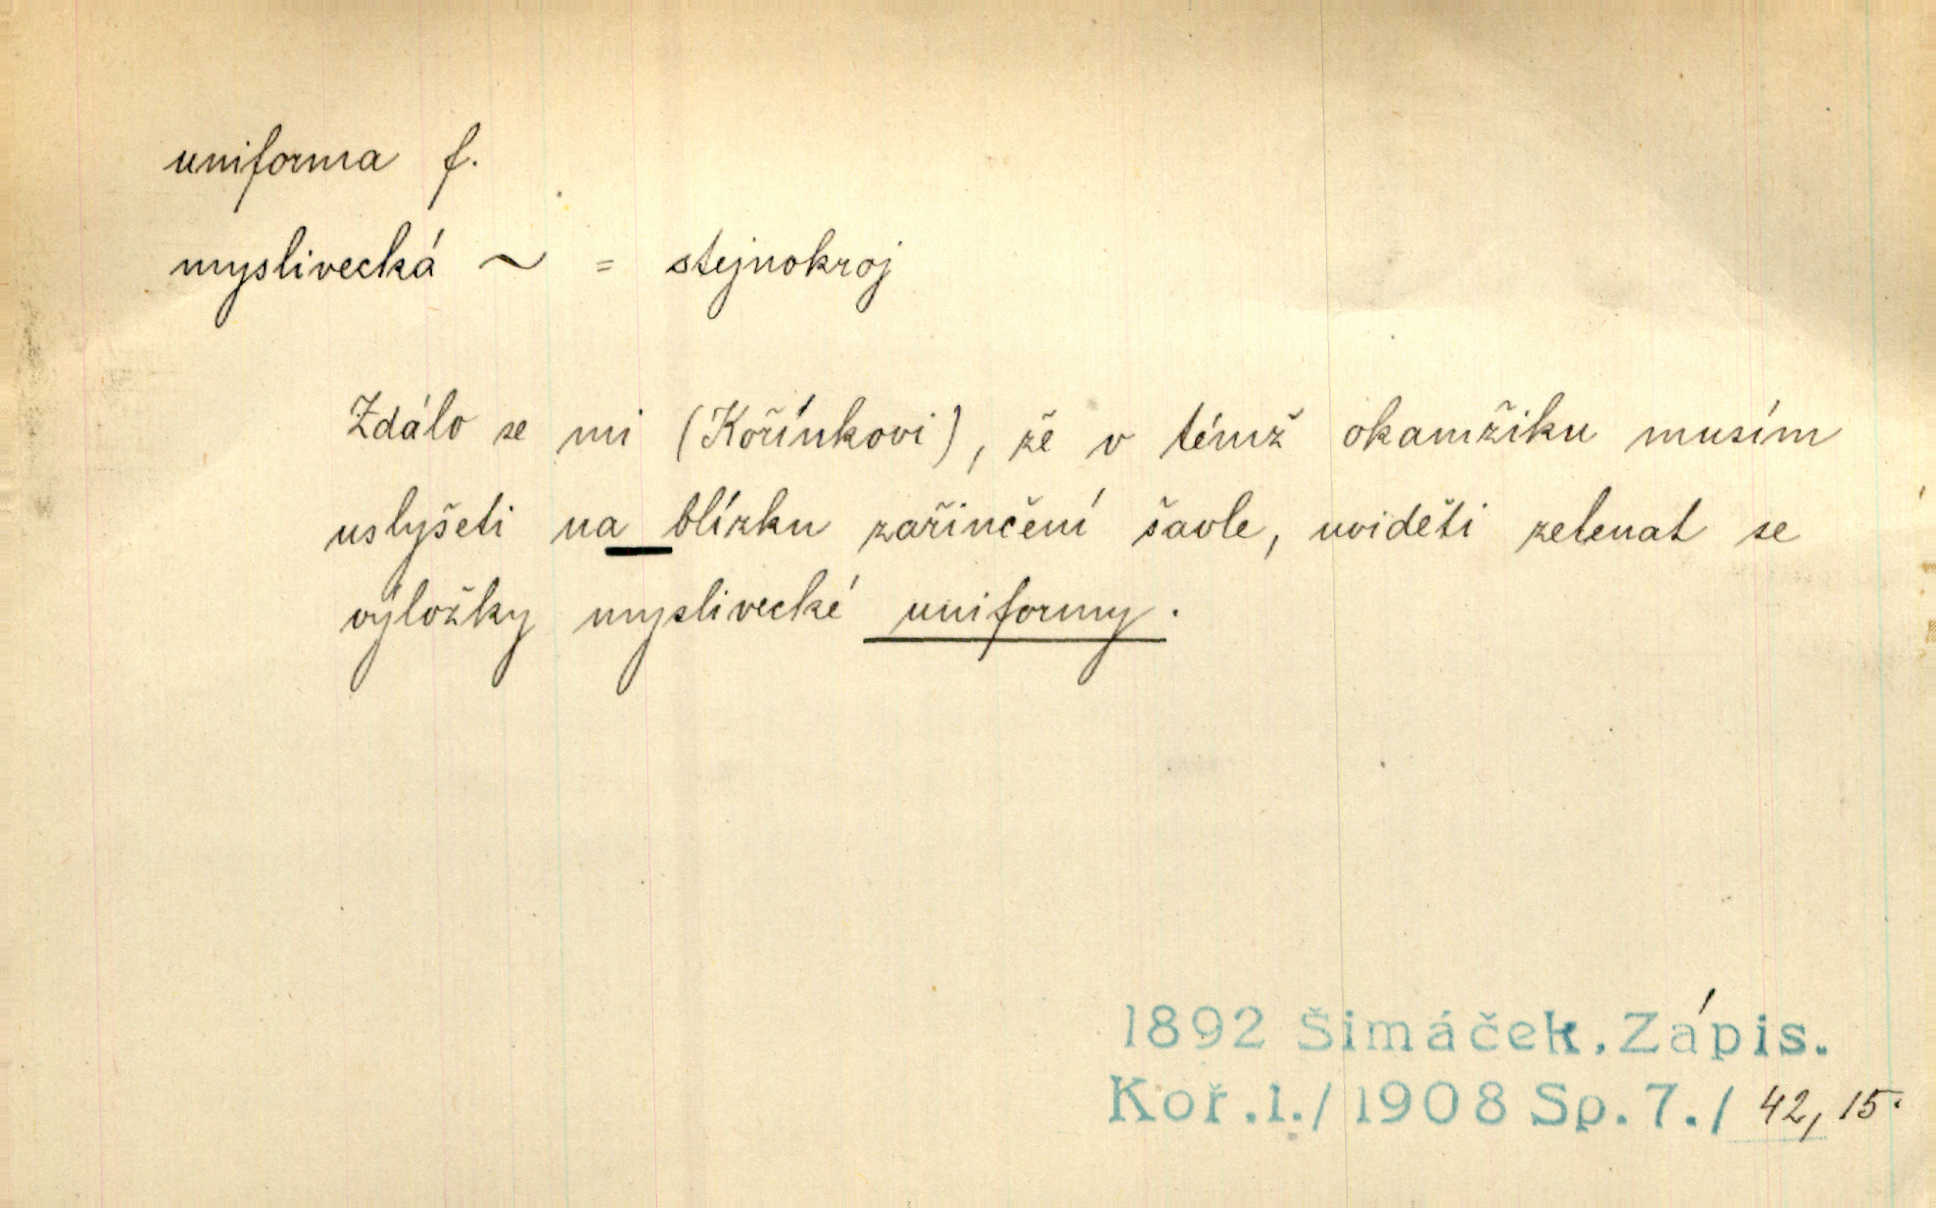 uniforma f.
myslivecká ~ = stejnokroj
Zdálo se mi (Kořínkovi), že v témž okamžiku musím
uslyšeti na blízku zařinčení šavle, uviděti zelenat se
výložky myslivecké uniformy.
1892 Šimáček. Zápis.
Koř. 1./1908 Sp. 7./ 42, 15.